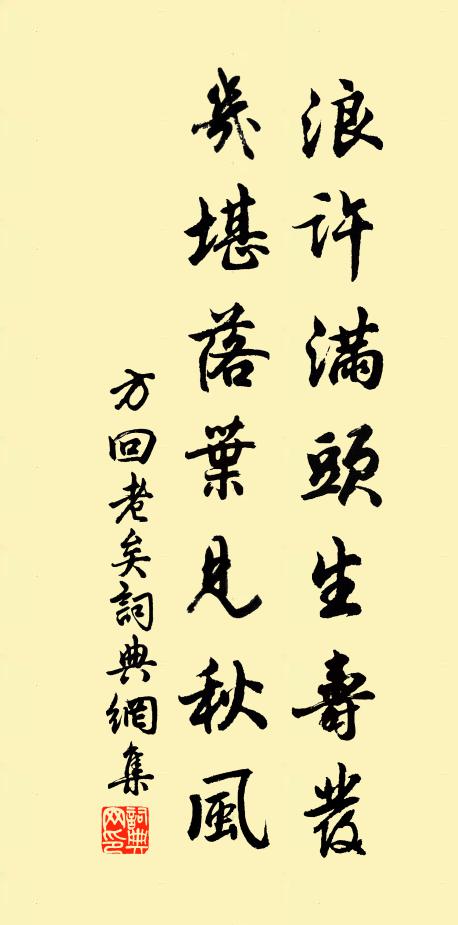 浪許滿頭生壽發
幾堪落葉見秋風
方回老矣詞典網集
詞典網印